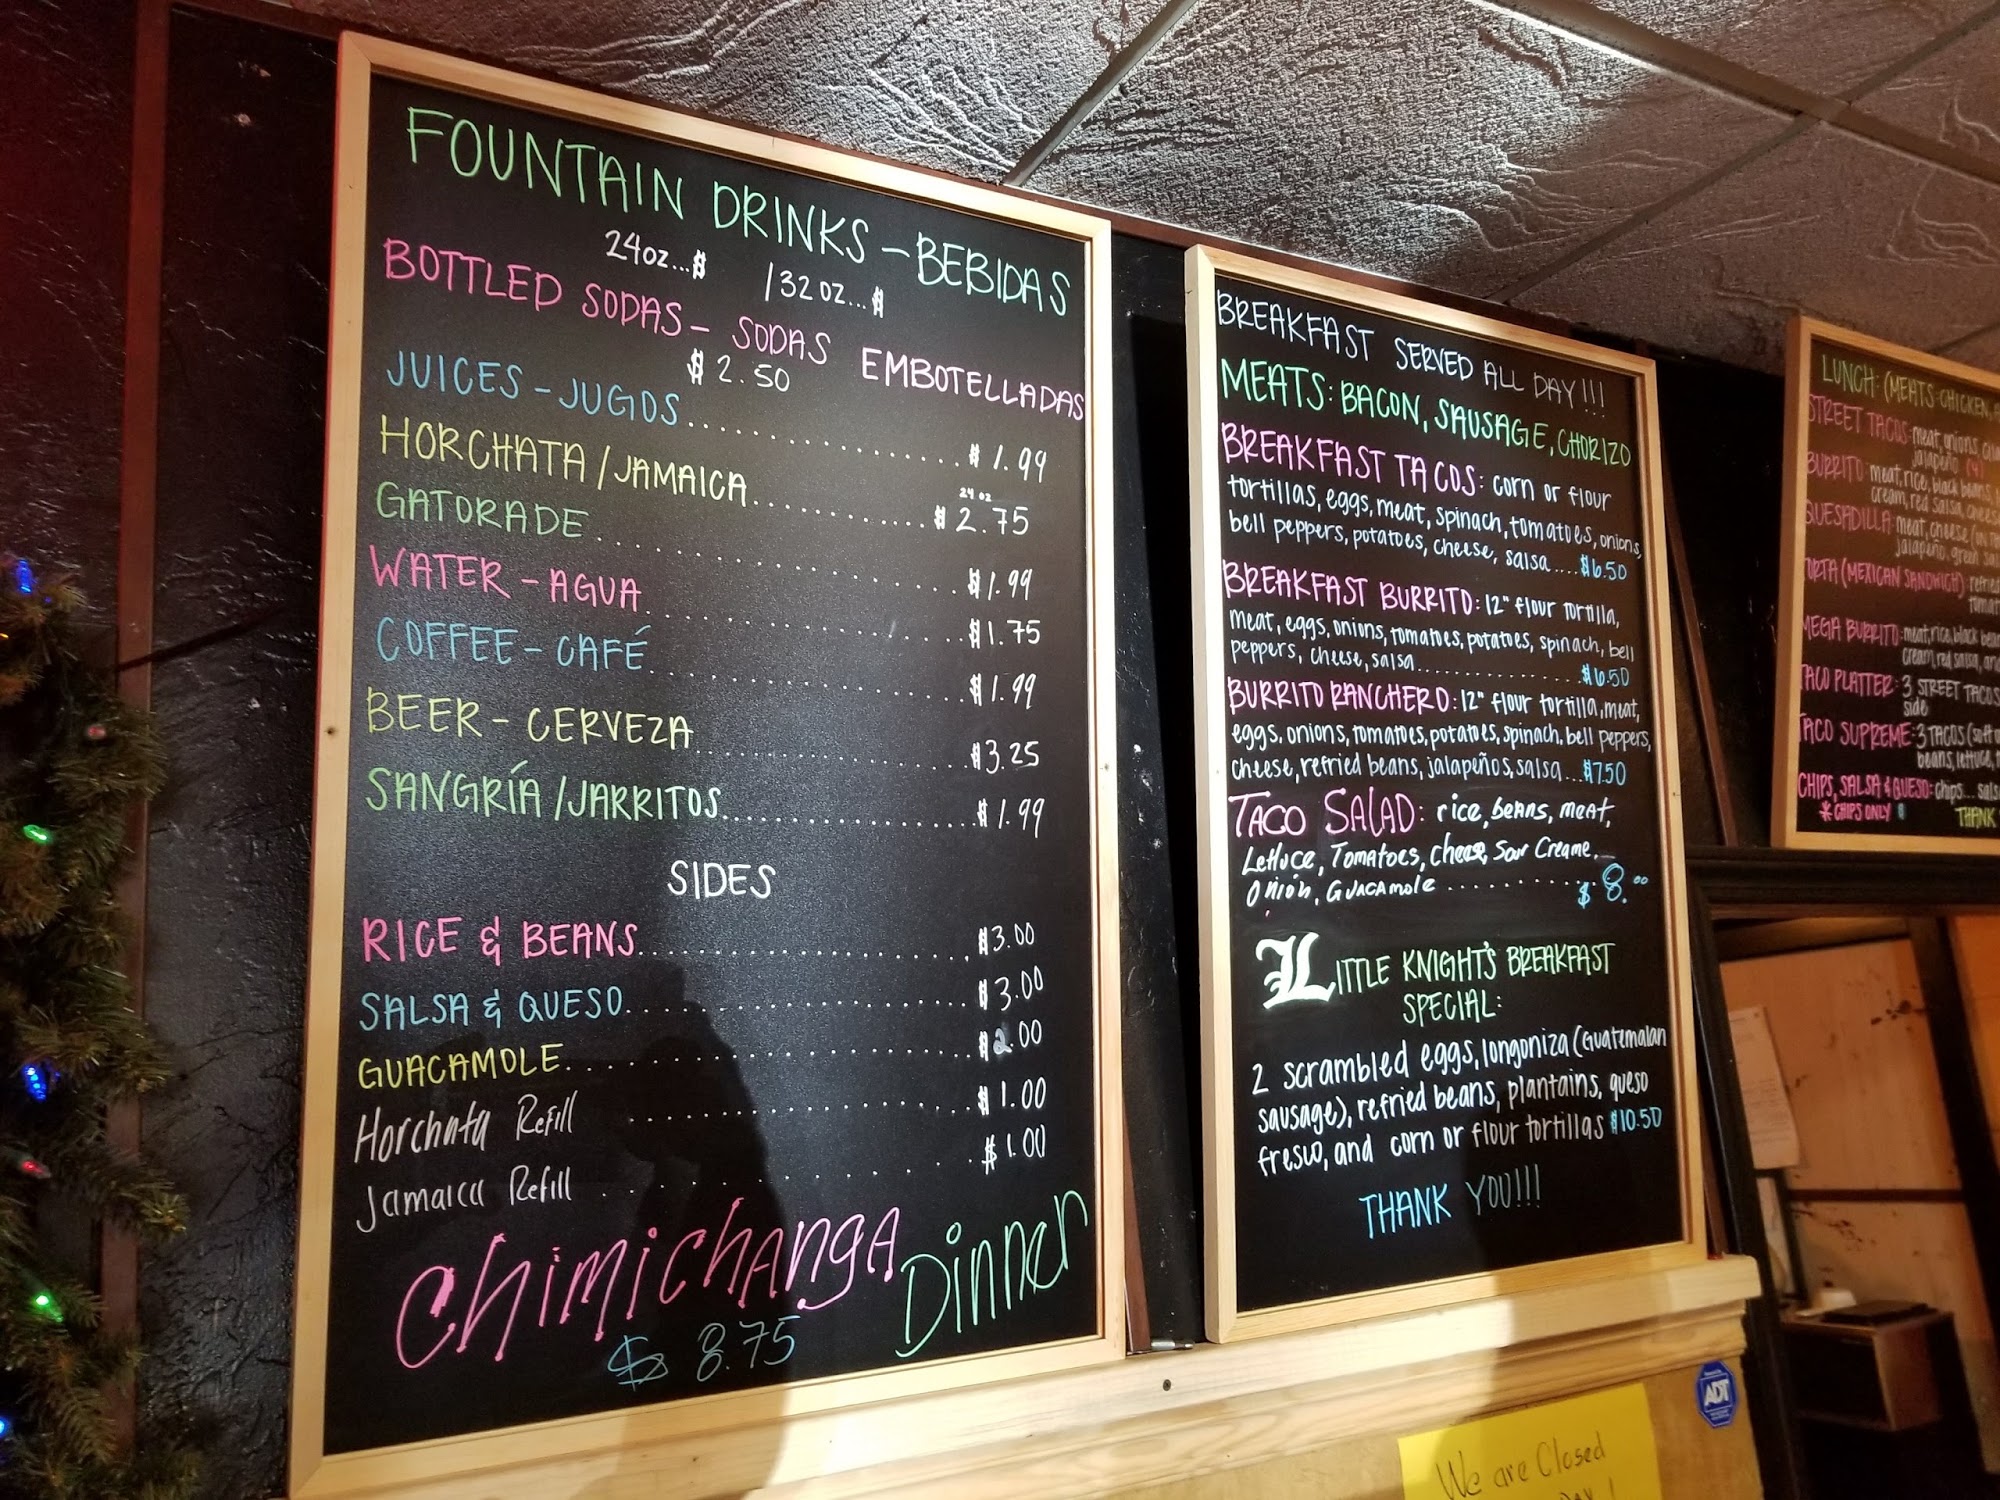 FOUNTAIN DRINKS - BEBIDAS
24oz...$ /32oz...$
BOTTLED SODAS - SODAS EMBOTELLADAS
$2.50
JUICES - JUGOS.................$1.99
HORCHATA/JAMAICA.................24 oz $2.75
GATORADE.................$1.99
WATER - AGUA.................$1.75
COFFEE - CAFÉ.................$1.99
BEER - CERVEZA.................$3.25
SANGRÍA/JARRITOS.................$1.99
SIDES
RICE & BEANS.................$3.00
SALSA & QUESO.................$3.00
GUACAMOLE.................$2.00
Horchata Refill.................$1.00
Jamaica Refill.................$1.00
Chimichanga Dinner
$8.75
BREAKFAST SERVED ALL DAY!!!
MEATS: BACON, SAUSAGE, CHORIZO
BREAKFAST TACOS: corn or flour
tortillas, eggs, meat, spinach, tomatoes, onions,
bell peppers, potatoes, cheese, salsa....$6.50
BREAKFAST BURRITO: 12" flour tortilla,
meat, eggs, onions, tomatoes, potatoes, spinach, bell
peppers, cheese, salsa.................$6.50
BURRITO RANCHERO: 12" flour tortilla, meat,
eggs, onions, tomatoes, potatoes, spinach, bell peppers,
cheese, refried beans, jalapeños, salsa...$7.50
TACO SALAD: rice, beans, meat,
Lettuce, Tomatoes, cheese, Sour Creame,
Onion, Guacamole.............$8.00
LITTLE KNIGHT'S BREAKFAST
SPECIAL:
2 scrambled eggs, longoniza (Guatemalan
sausage), refried beans, plantains, queso
fresco, and corn or flour tortillas $10.50
THANK YOU!!!
LUNCH: (MEATS-CHICKEN,
STREET TACOS: meat, onions,
jalapeño (4)
BURRITO: meat, rice, black beans,
cream, red salsa,
QUESADILLA: meat, cheese
jalapeño, green
TORTA (MEXICAN SANDWICH) refried
MEGA BURRITO: meat, rice, black
cream, red salsa, and
TACO PLATTER: 3 STREET TACOS
side
TACO SUPREME: 3 TACOS
beans, lettuce,
CHIPS, SALSA & QUESO: chips...
*CHIPS ONLY
THANK
ADT
We are Closed